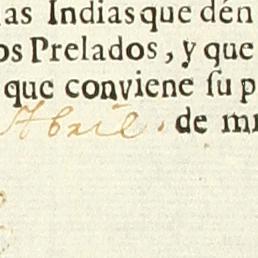 las Indias que dén
os Prelados, y que
que conviene ſu p
Abril. de m